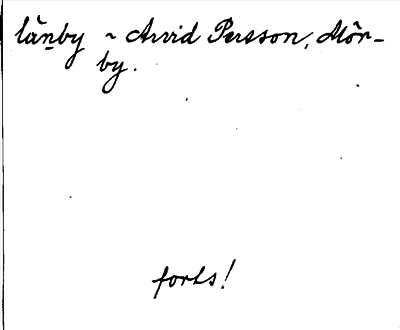 lǡṉby ~ Arvid Persson, Mör-
by.
forts!